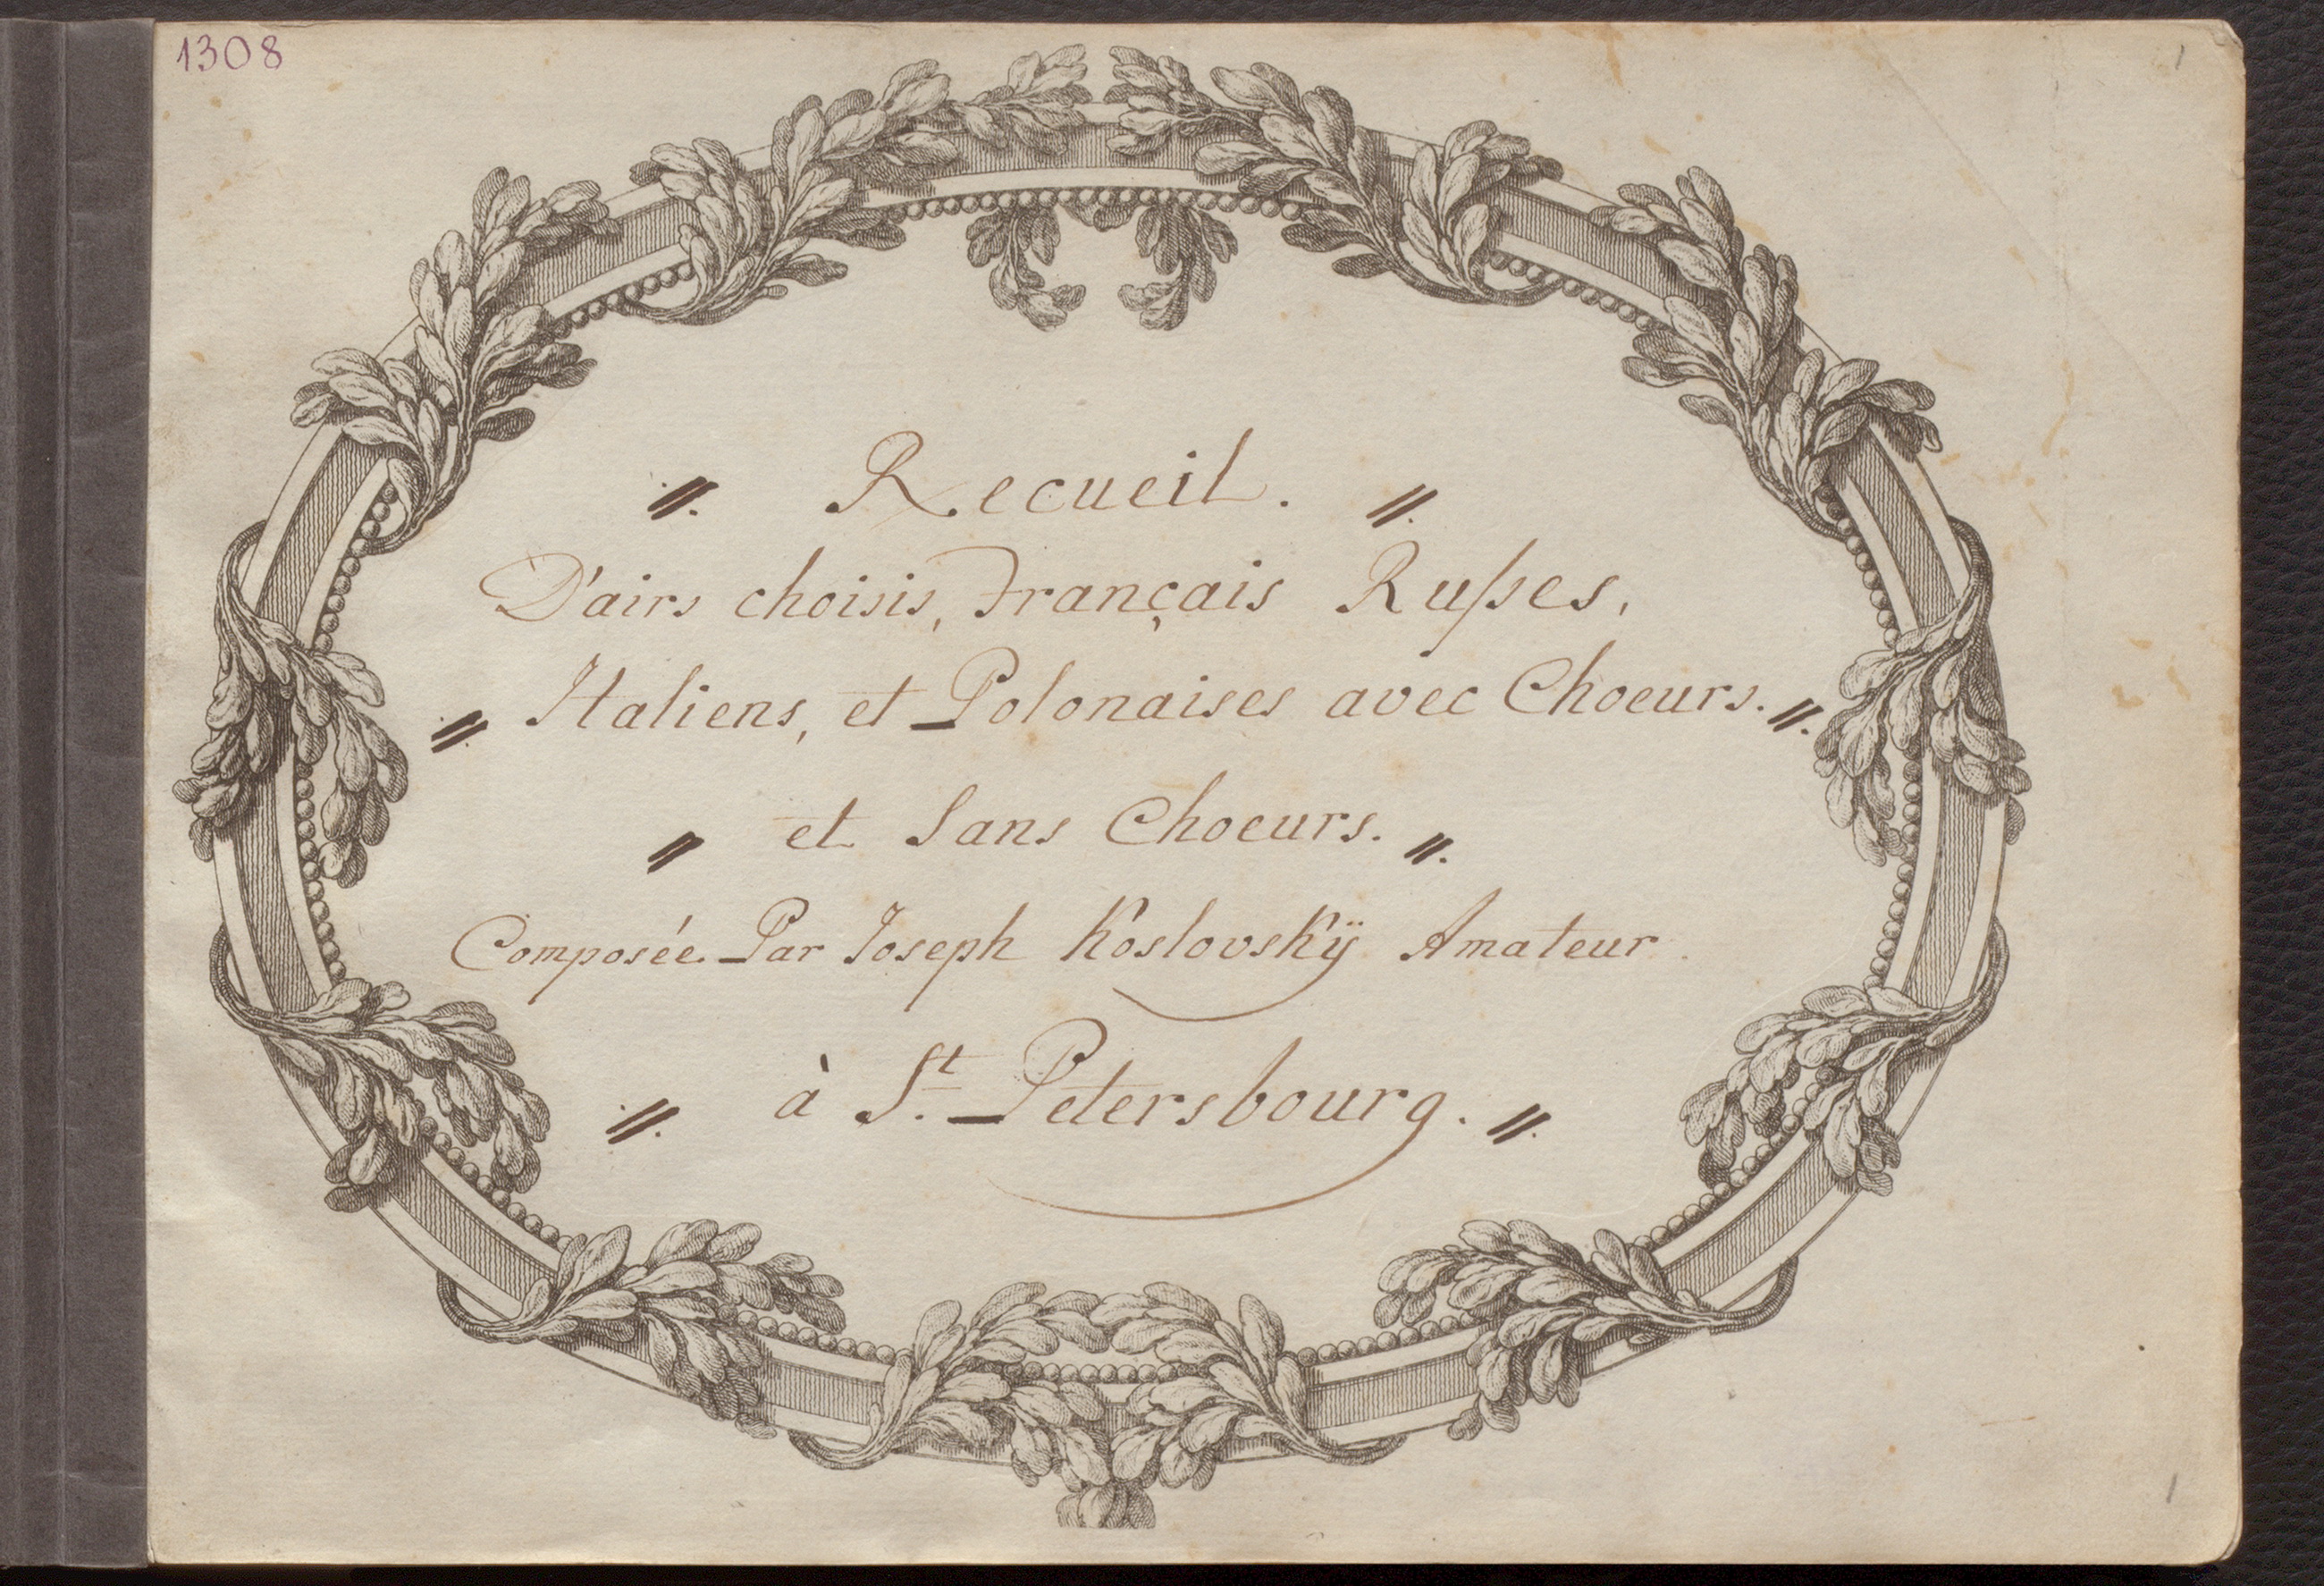 1308
1
〃. Recueil. 〃.
D'airs choisis, Français Ruſses,
〃. Italiens, et Polonaises avec Choeurs. 〃.
〃 et Sans Choeurs. 〃.
Composée Par Joseph Koslovskÿ Amateur.
〃. à St. Petersbourg. 〃.
1